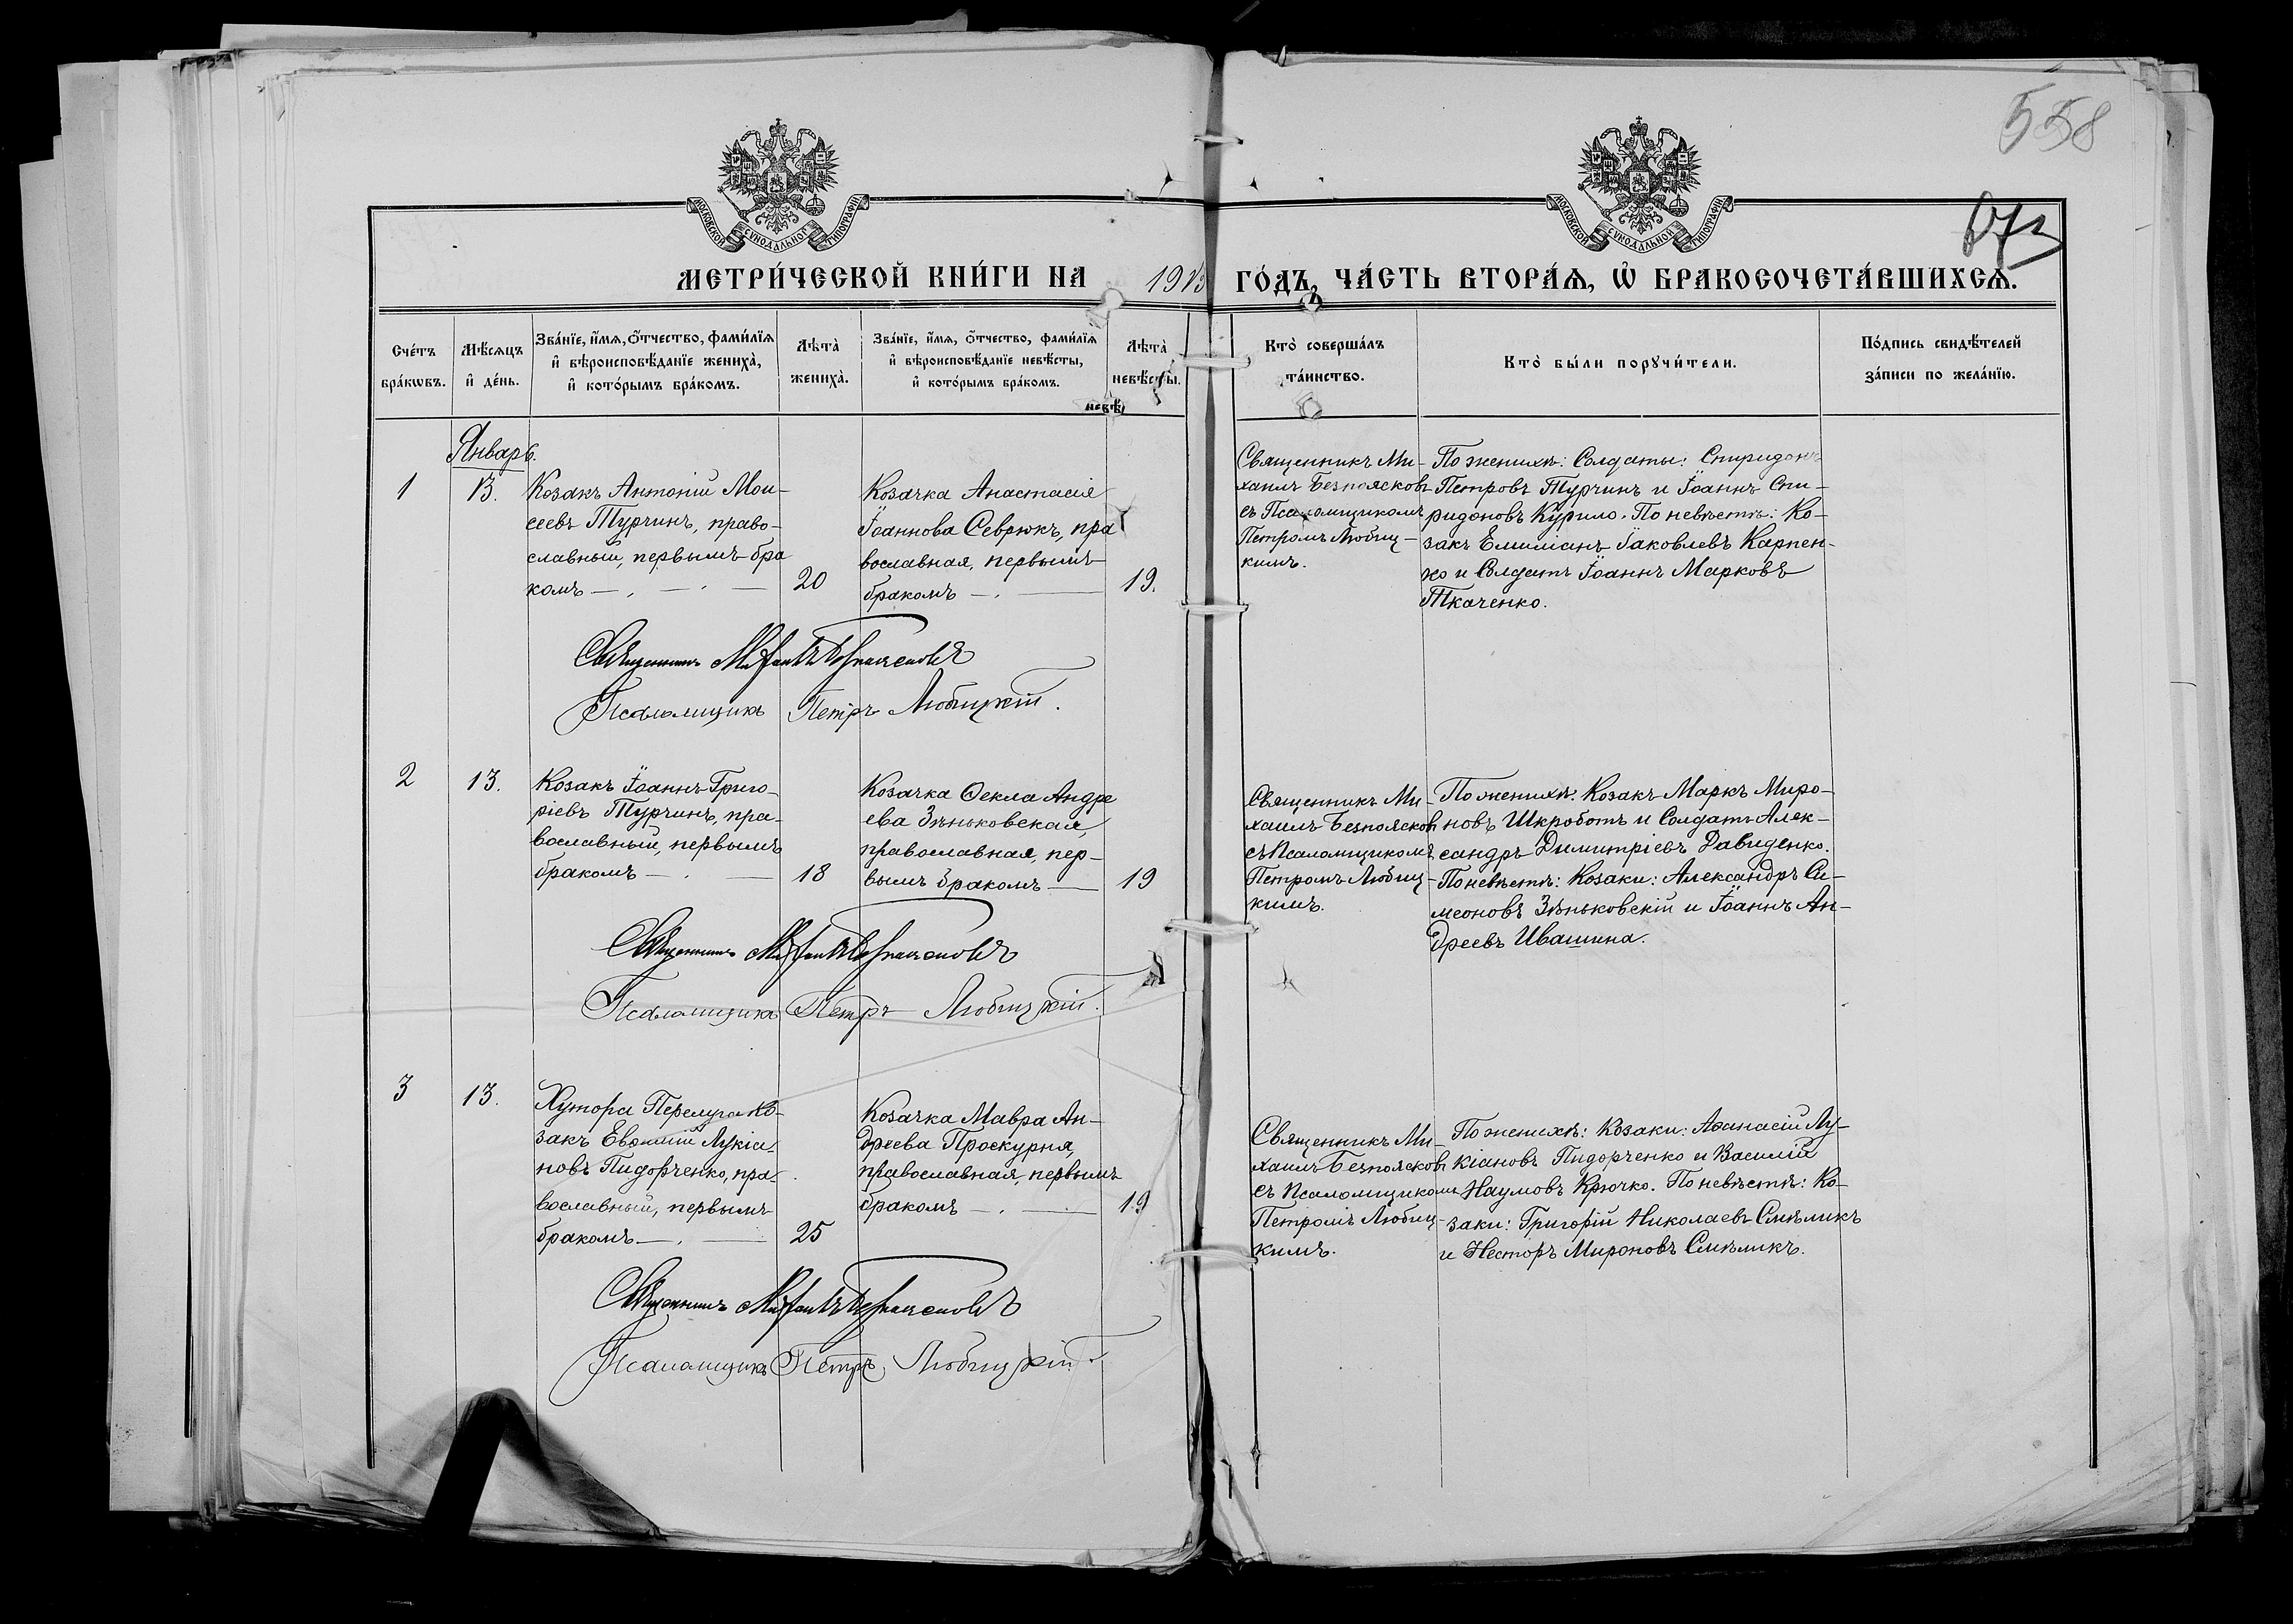 558
МОСКОВСКОЙ СУНОДАЛЬНОЙ ТИПОГРАФІИ
МОСКОВСКОЙ СУНОДАЛЬНОЙ ТИПОГРАФІИ
МЕТРИ́ЧЕСКОЙ КНИ́ГИ НА 1913 ГО́ДЪ, ЧА́СТЬ ВТОРА́Я, Ѡ БРАКОСОЧЕТА́ВШИХСЯ.
Сче́тъ бра́кѡвъ.
Мѣ́сяцъ и де́нь.
Зва́нїе, и́мя, о́тчество, фами́лїя
и вѣроисповѣ́данїе жениха̀,
и кото́рымъ бра́комъ.
Лѣта̀ жениха̀.
Зва́нїе, и́мя, о́тчество, фами́лїя
и вѣроисповѣ́данїе невѣ́сты,
и кото́рымъ бра́комъ.
Лѣта̀ невѣ́сты.
невѣ
Кто̀ соверша́лъ
та́инство.
Кто̀ бы́ли порꙋчи́тели.
По́дпись свидѣ́телей
за́писи по жела́нїю.
Январь.
1
13.
Козакъ Антоній Мои-
сеевъ Турчинъ, право-
славный, первымъ бра
комъ
20
Козачка Анастасія
Іоаннова Севрюкъ, пра
вославная, первымъ
бракомъ
19.
Священникъ Ми-
хаилъ Безпоясковъ
съ Псаломщикомъ
Петромъ Любиц-
кимъ.
По женихѣ: Солдаты: Спиридонъ
Петровъ Турчинъ и Іоаннъ Спи-
ридоновъ Курило. По невѣстѣ: Ко-
закъ Емиліанъ Іаковлевъ Карпен-
ко и Солдатъ Іоаннъ Марковъ
Ткаченко.
Священникъ Михаилъ Безпоясковъ
Псаломщикъ Петръ Любицкій.
2
13.
Козакъ Іоаннъ Григо-
ріевъ Турчинъ, пра-
вославный, первымъ
бракомъ
18
Козачка Ѳекла Андре
ева Зѣньковская,
православная, пер-
вымъ бракомъ
19
Священникъ Ми-
хаилъ Безпоясковъ
съ Псаломщикомъ
Петромъ Любиц-
кимъ.
По женихѣ: Козакъ Маркъ Миро-
новъ Шкроботъ и Солдатъ Алек-
сандръ Димитріевъ Давиденко.
По невѣстѣ: Козаки: Александръ Си-
меоновъ Зѣньковскій и Іоаннъ Ан-
дреевъ Ивашина.
Священникъ Михаилъ Безпоясковъ
Псаломщикъ Петръ Любицкій.
3
13.
Хутора Перелуга Ко-
закъ Евѳимій Лукіа-
новъ Пидорченко, пра-
вославный, первымъ
бракомъ
25
Козачка Мавра Ан-
дреева Проскурня,
православная, первымъ
бракомъ
19
Священникъ Ми-
хаилъ Безпоясковъ
съ Псаломщикомъ
Петромъ Любиц-
кимъ.
По женихѣ: Козаки: Аѳанасій Лу-
кіановъ Пидорченко и Василій
Наумовъ Крючко. По невѣстѣ: Ко-
заки: Григорій Николаевъ Смѣликъ
и Несторъ Мироновъ Смѣликъ.
Священникъ Михаилъ Безпоясковъ
Псаломщикъ Петръ Любицкій.